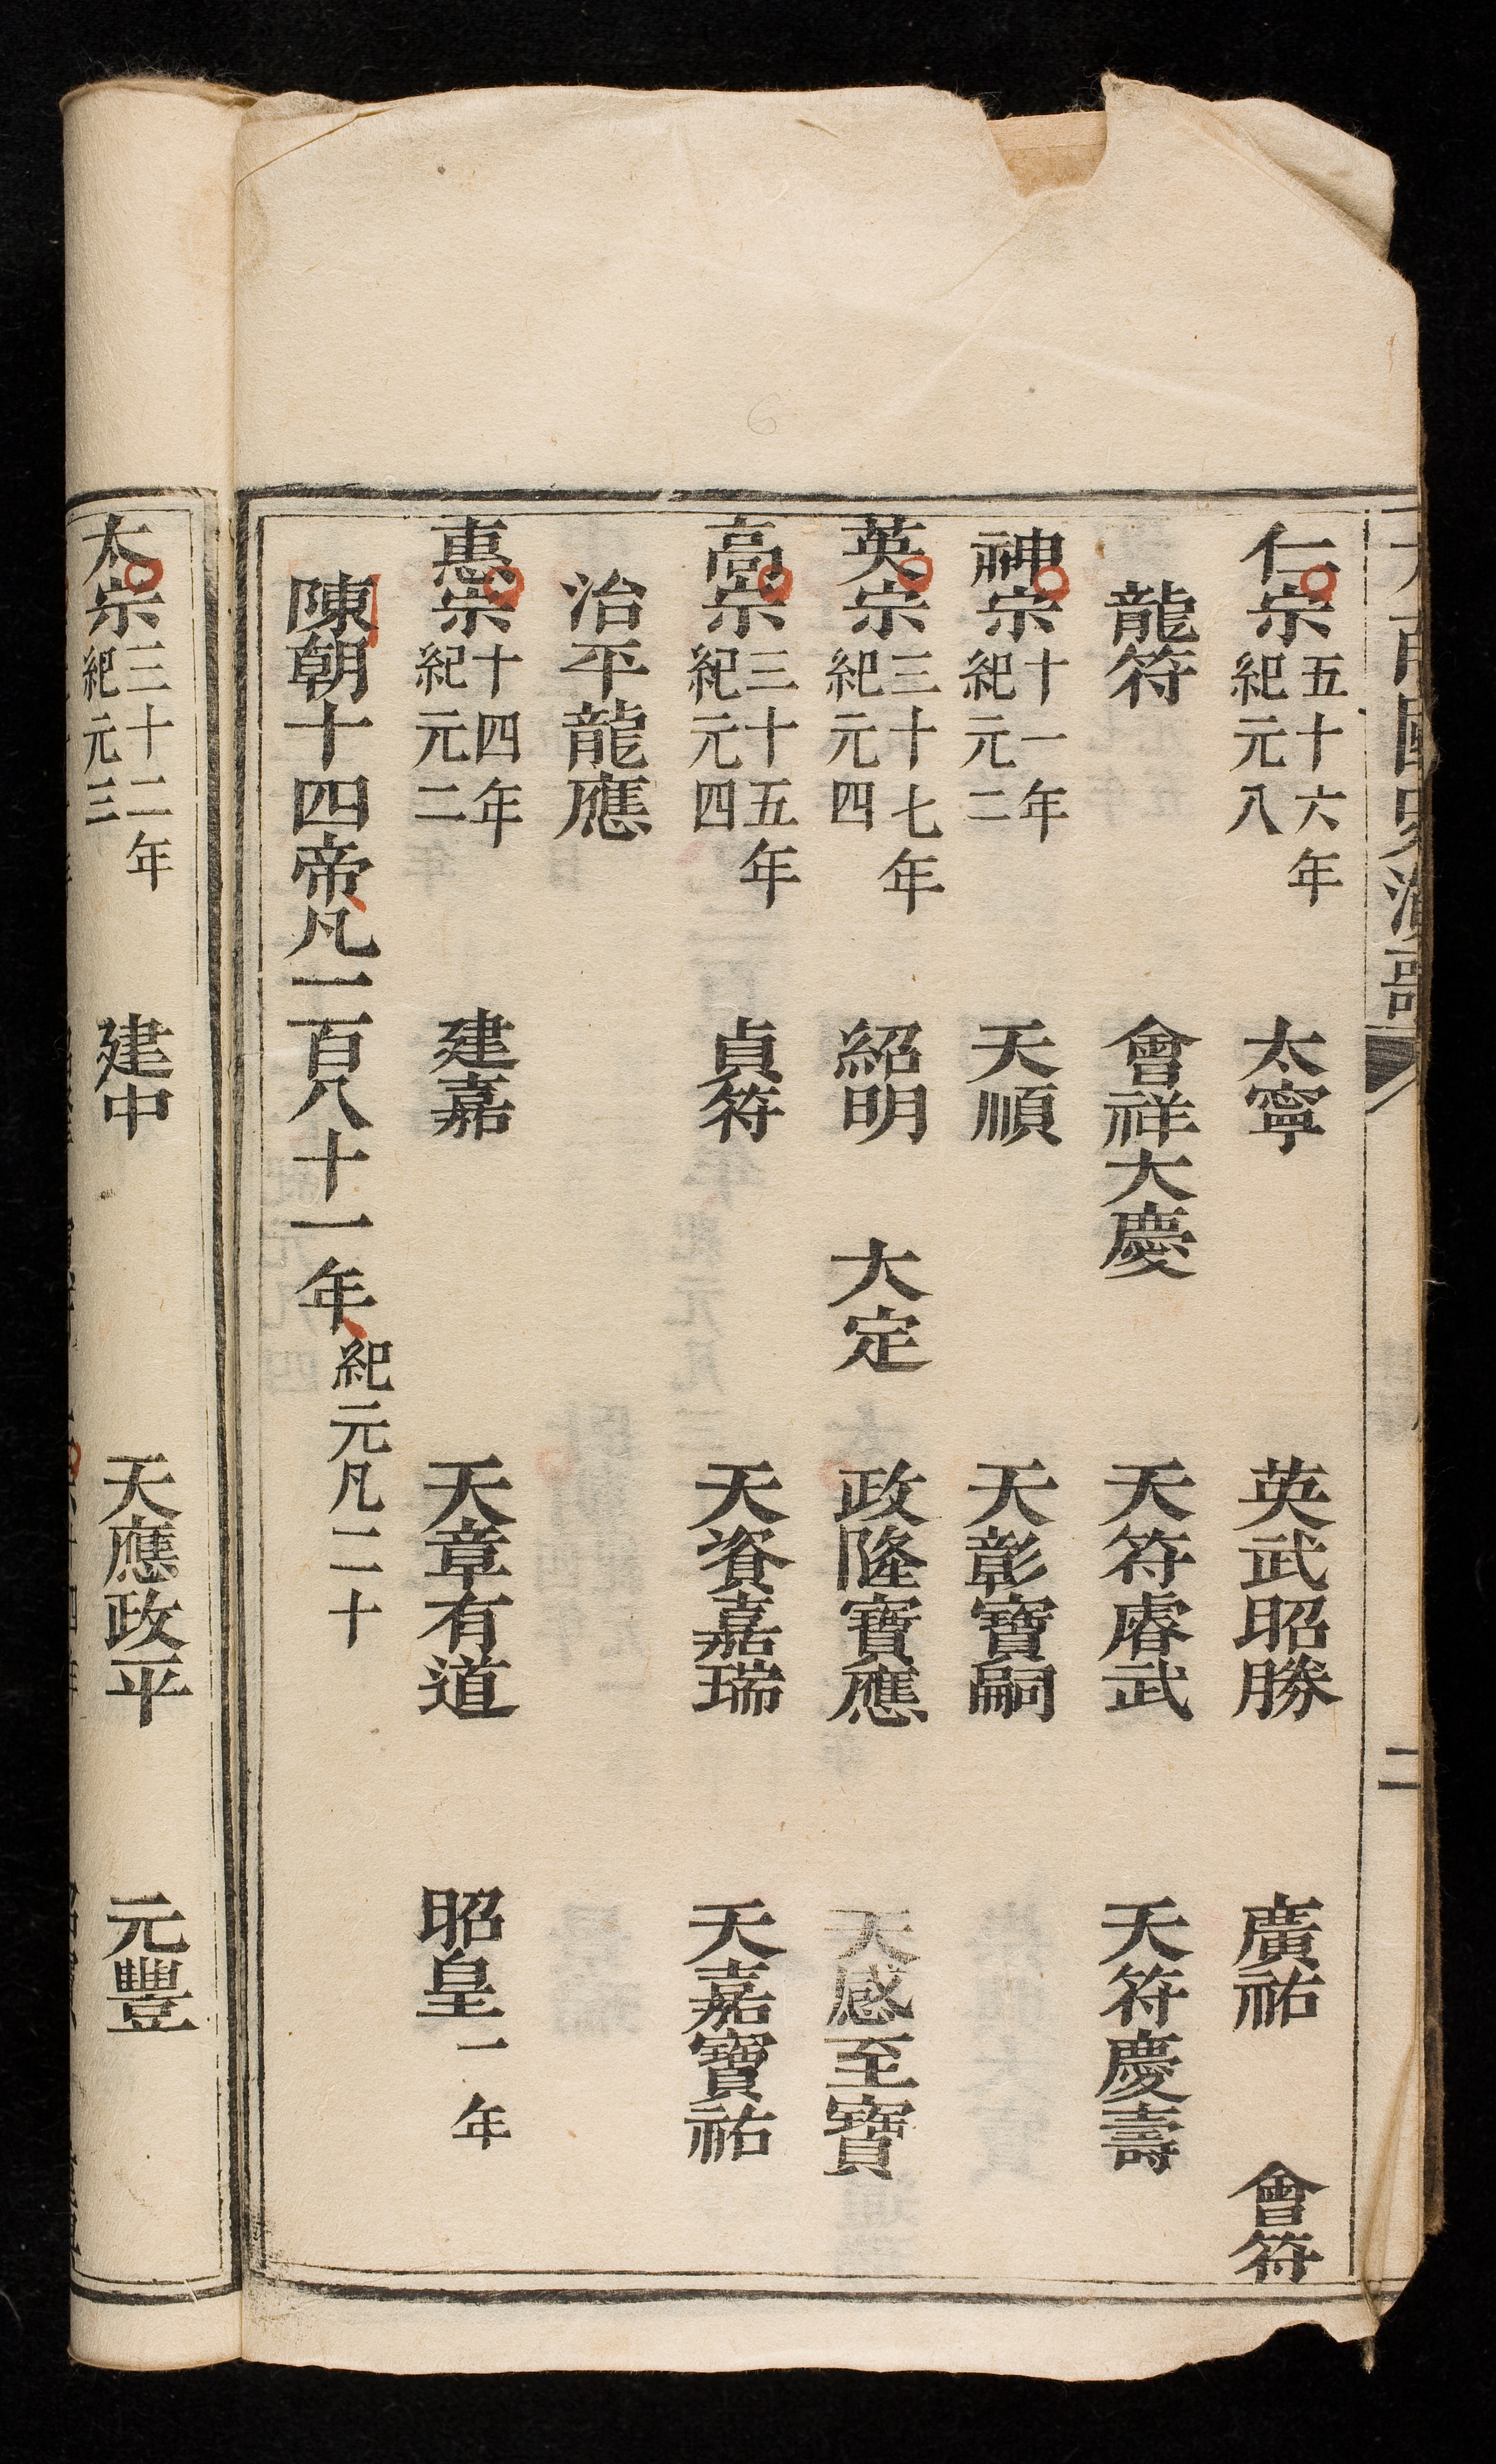 大南國史演歌 二
仁宗 五十六年 紀元八 太寧 英武昭勝 廣祐 會符
龍符 會祥大慶 天符睿武 天符慶壽
神宗 十一年 紀元二 天順 天彰寶嗣
英宗 三十七年 紀元四 紹明 大定 政隆寶應 天感至寶
高宗 三十五年 紀元四 貞符 天資嘉瑞 天嘉寶祐
治平龍應
惠宗 十四年 紀元二 建嘉 天章有道 昭皇 一年
陳朝十四帝凡一百八十一年 紀元凡二十
太宗 三十二年 紀元三 建中 天應政平 元豐